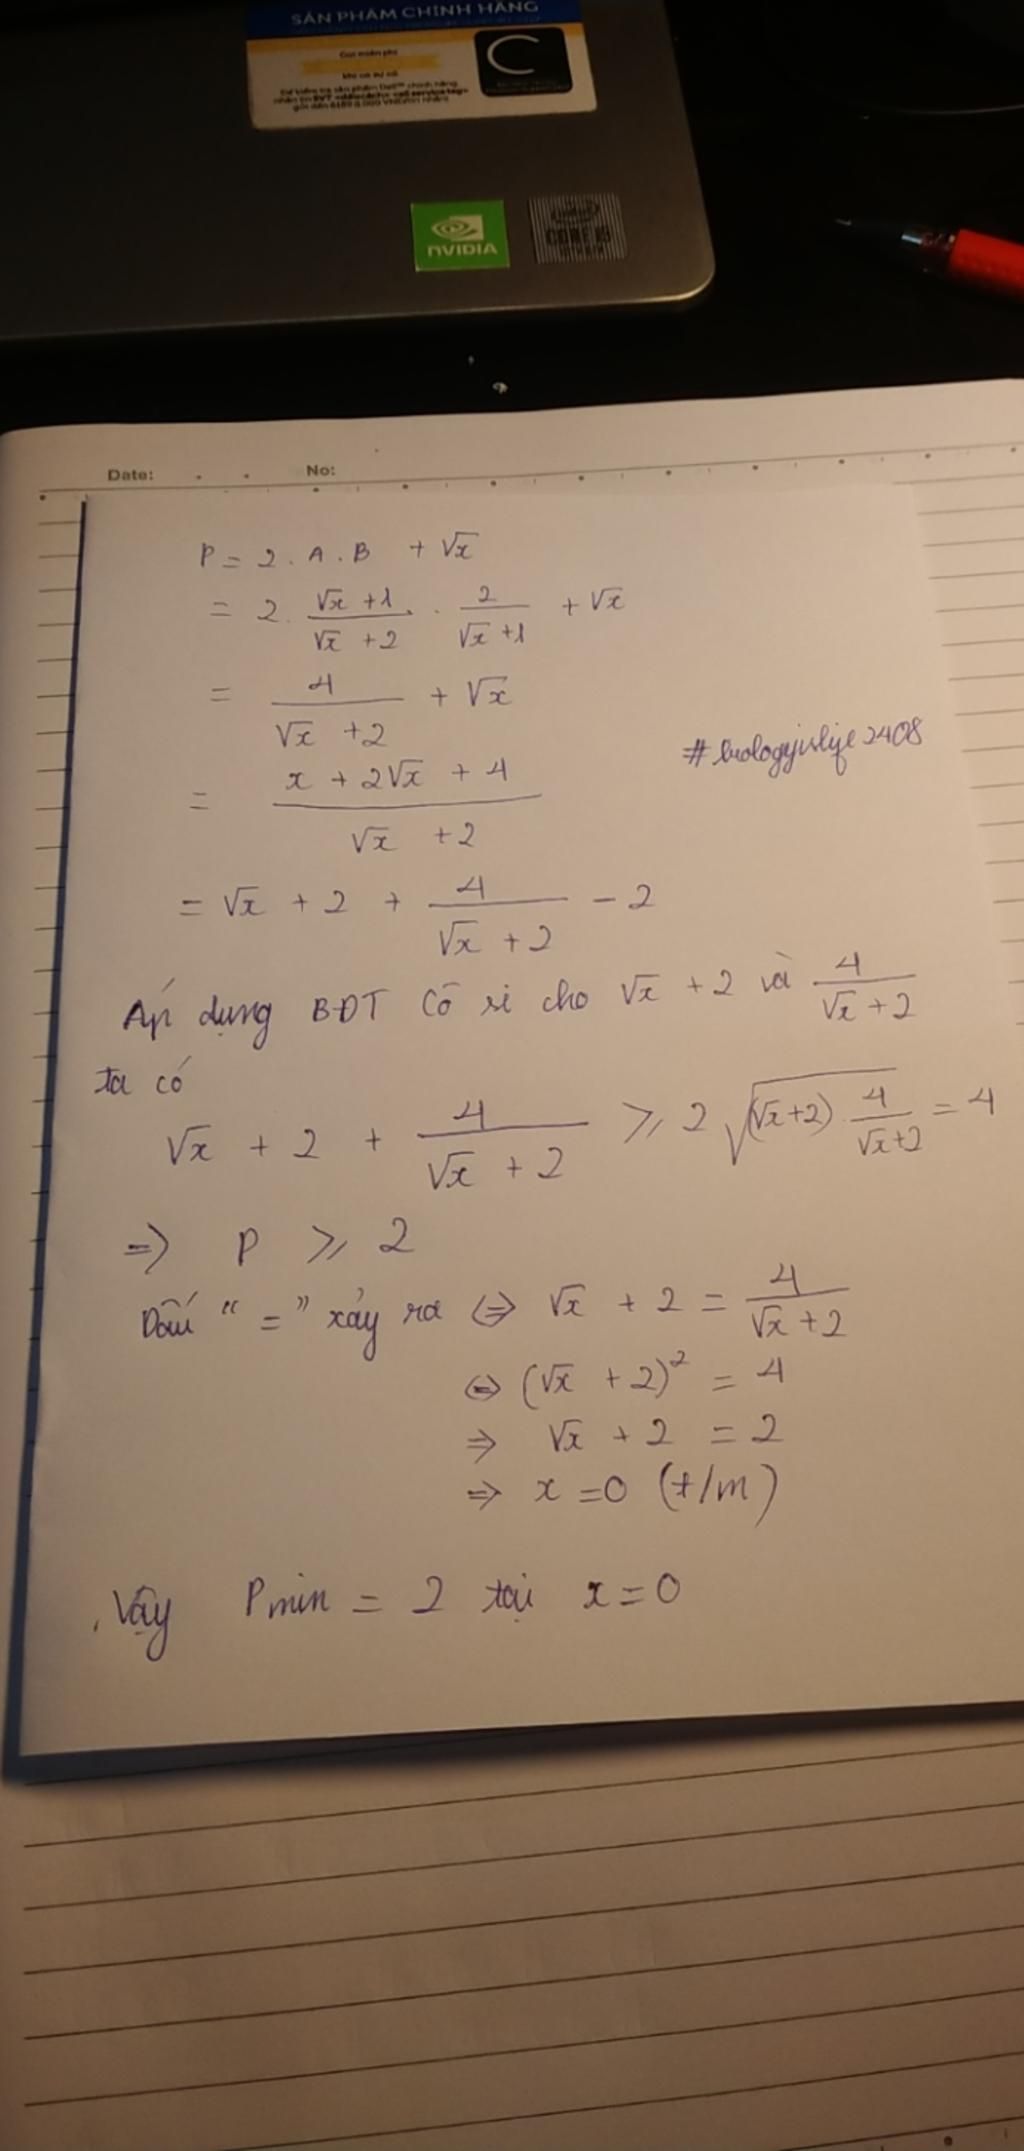 SẢN PHẨM CHÍNH HÃNG
C
NVIDIA
intel
CORE i5
Date:
No:
P = 2 . A . B + √x
= 2 . (√x + 1)/(√x + 2) . 2/(√x + 1) + √x
= 4/(√x + 2) + √x
#biologyislife2408
= (x + 2√x + 4)/(√x + 2)
= √x + 2 + 4/(√x + 2) - 2
Áp dụng BĐT Cô si cho √x + 2 và 4/(√x + 2)
ta có
√x + 2 + 4/(√x + 2) ⩾ 2√((√x+2) . 4/(√x+2)) = 4
=> P ⩾ 2
Dấu " = " xảy ra <=> √x + 2 = 4/(√x + 2)
<=> (√x + 2)² = 4
=> √x + 2 = 2
=> x = 0 (t/m)
Vậy Pmin = 2 tại x = 0